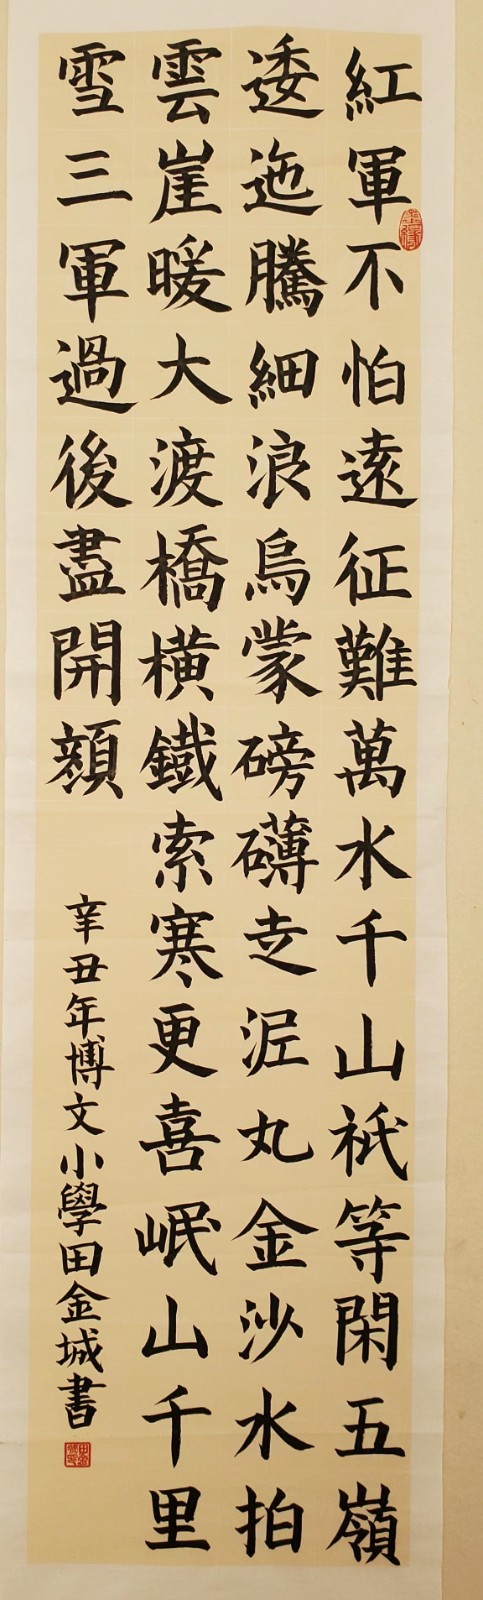 紅軍不怕遠征難萬水千山祇等閑五嶺
逶迤騰細浪烏蒙磅礴走泥丸金沙水拍
雲崖暖大渡橋橫鐵索寒更喜岷山千里
雪三軍過後盡開顏
辛丑年博文小學田金城書